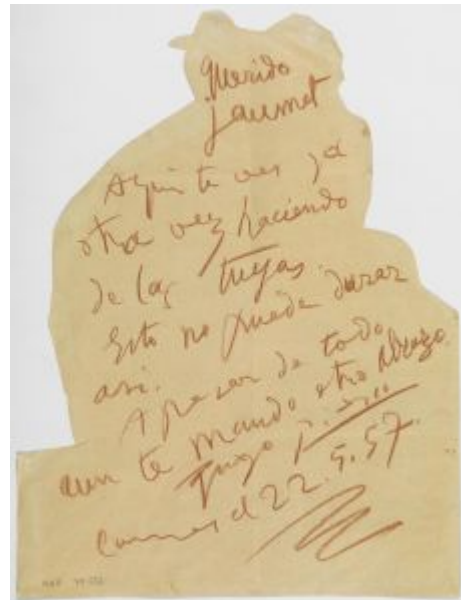 Querido
Jaumet
Aqui te ves ya
otra vez haciendo
de las tuyas.
Esto no puede durar
asi.
A pesar de todo
aun te mando otro abrazo.
Tuyo Picasso
Cannes d 22.5.57.